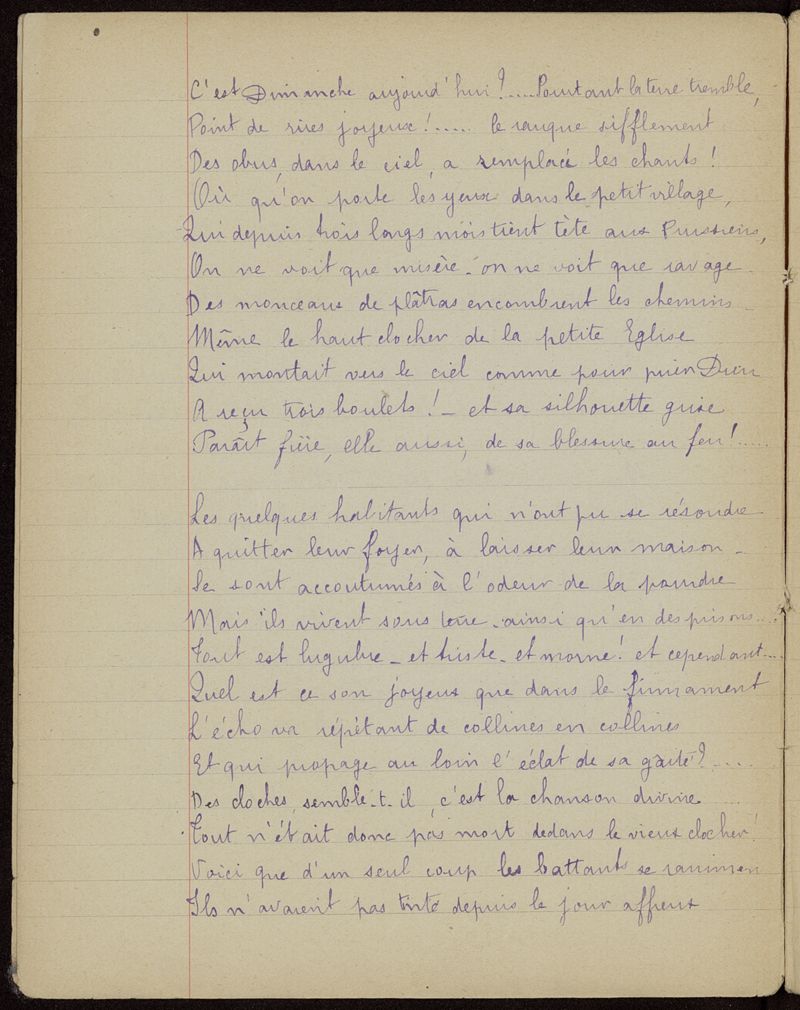 C'est Dimanche aujourd'hui ?.... Pourtant la terre tremble,
Point de rires joyeux !..... le rauque sifflement
Des obus, dans le ciel, a remplacé les chants !
Où qu'on porte les yeux dans le petit village,
Qui depuis trois longs mois tient tête aux Prussiens,
On ne voit que misère - on ne voit que ravage -
Des monceaux de plâtras encombrent les chemins -
Même le haut clocher de la petite Eglise
Qui montait vers le ciel comme pour prier Dieu
A reçu trois boulets ! - et sa silhouette grise
Paraît fière, elle aussi, de sa blessure au feu !.....
Les quelques habitants qui n'ont pu se résoudre
A quitter leur foyer, à laisser leur maison -
Se sont accoutumés à l'odeur de la poudre
Mais ils vivent sous terre - ainsi qu'en des prisons....
Tout est lugubre - et triste - et morne ! et cependant....
Quel est ce son joyeux que dans le firmament
L'écho va répétant de collines en collines
Et qui propage au loin l'éclat de sa gaité ?....
Des cloches, semble-t-il, c'est la chanson divine....
Tout n'était donc pas mort dedans le vieux clocher !
Voici que d'un seul coup les battants se raniment
Ils n'avaient pas tinté depuis le jour affreux